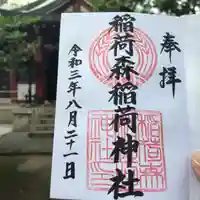 奉拝
稲荷森稲荷神社
令和三年八月二十一日